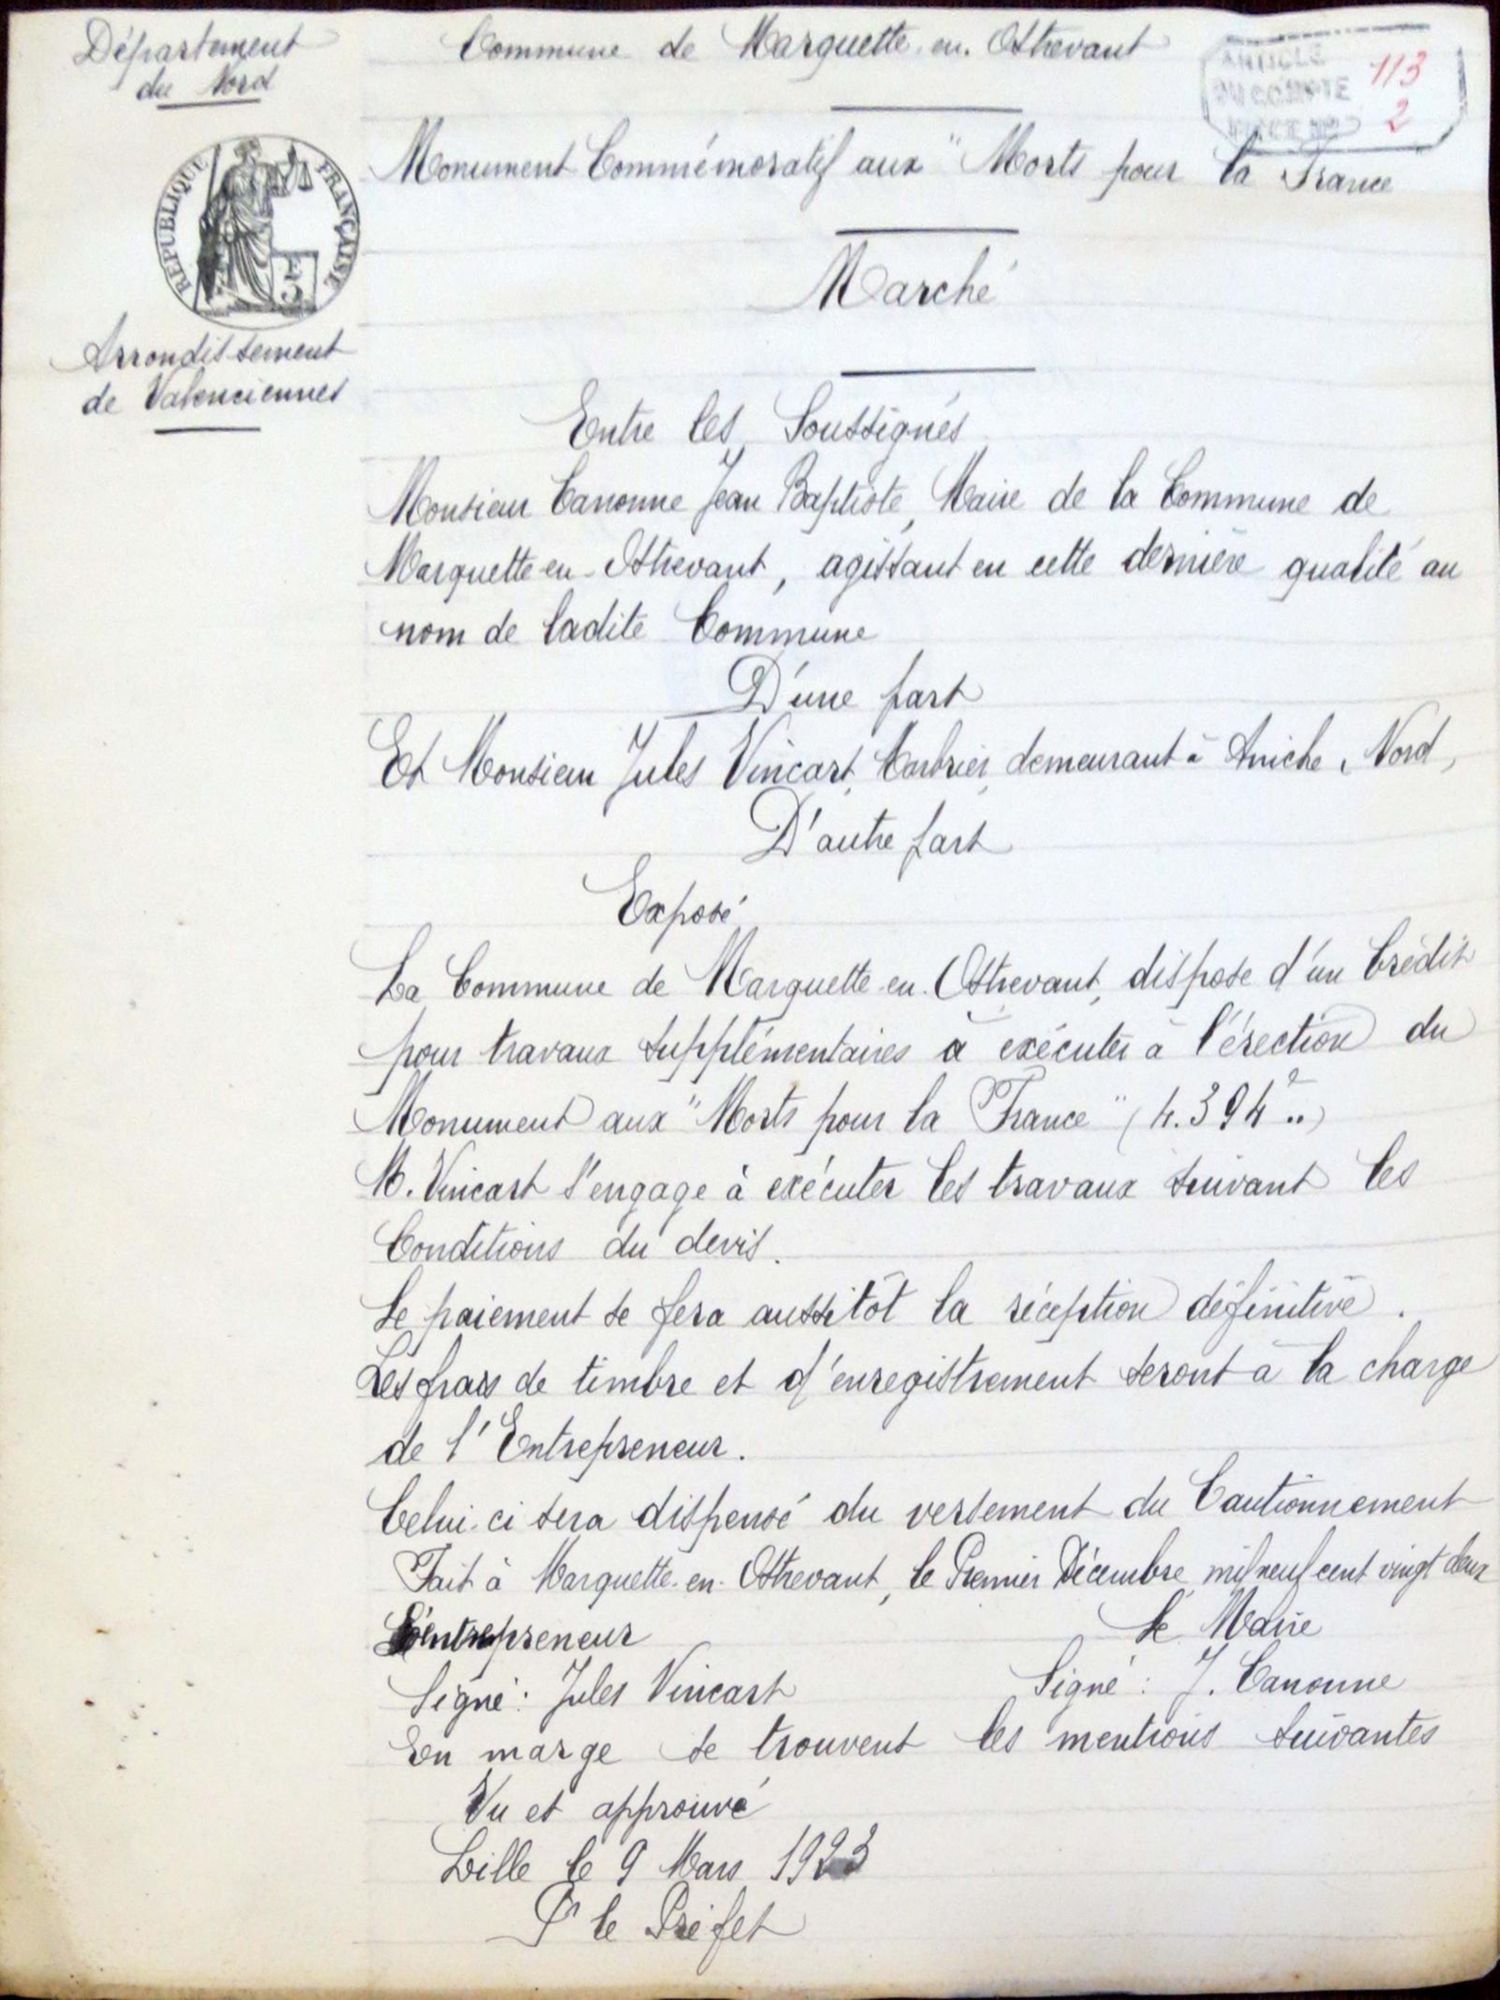 Département
du Nord
Commune de Marquette-en-Osthevant
ARTICLE 113
DU COMPTE
PIECE No 2
Monument Commémoratif aux "Morts pour la France
RÉPUBLIQUE FRANÇAISE
Marché
Arrondissement
de Valenciennes
Entre les Soussignés
Monsieur Canonne Jean Baptiste, Maire de la Commune de
Marquette-en-Osthevant, agissant en cette dernière qualité au
nom de ladite Commune
D'une part
Et Monsieur Jules Vincart, Marbrier, demeurant à Aniche (Nord)
D'autre part
Exposé
La Commune de Marquette-en-Osthevant, dispose d'un Crédit
pour travaux supplémentaires à exécuter à l'érection du
Monument aux "Morts pour la France" (4.394 f..)
M. Vincart s'engage à exécuter les travaux suivant les
Conditions du devis.
Le paiement se fera aussitôt la réception définitive.
Les frais de timbre et d'enregistrement seront à la charge
de l'Entrepreneur.
Celui-ci sera dispensé du versement du Cautionnement
Fait à Marquette-en-Osthevant, le Premier Décembre mil neuf cent vingt deux
L'entrepreneur Le Maire
Signé: Jules Vincart Signé: J. Canonne
En marge se trouvent les mentions suivantes
Vu et approuvé
Lille le 9 Mars 1923
Pr le Préfet